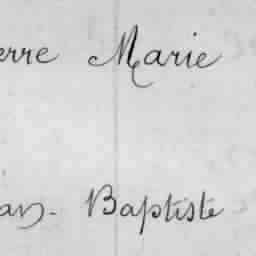 erre Marie
an - Baptiste